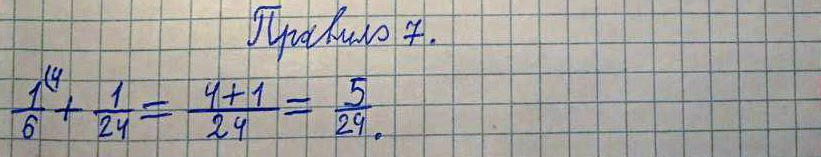 Правило 7.
1/6 (4 + 1/24 = 4+1/24 = 5/24.